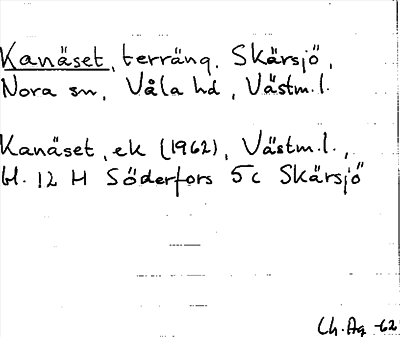 Kanäset, terräng, Skärsjö,
Nora sn, Våla hd, Västm.l.
Kanäset, ek (1962), Västm.l.,
bl. 12 H Söderfors 5c Skärsjö
Ch.Ag -62